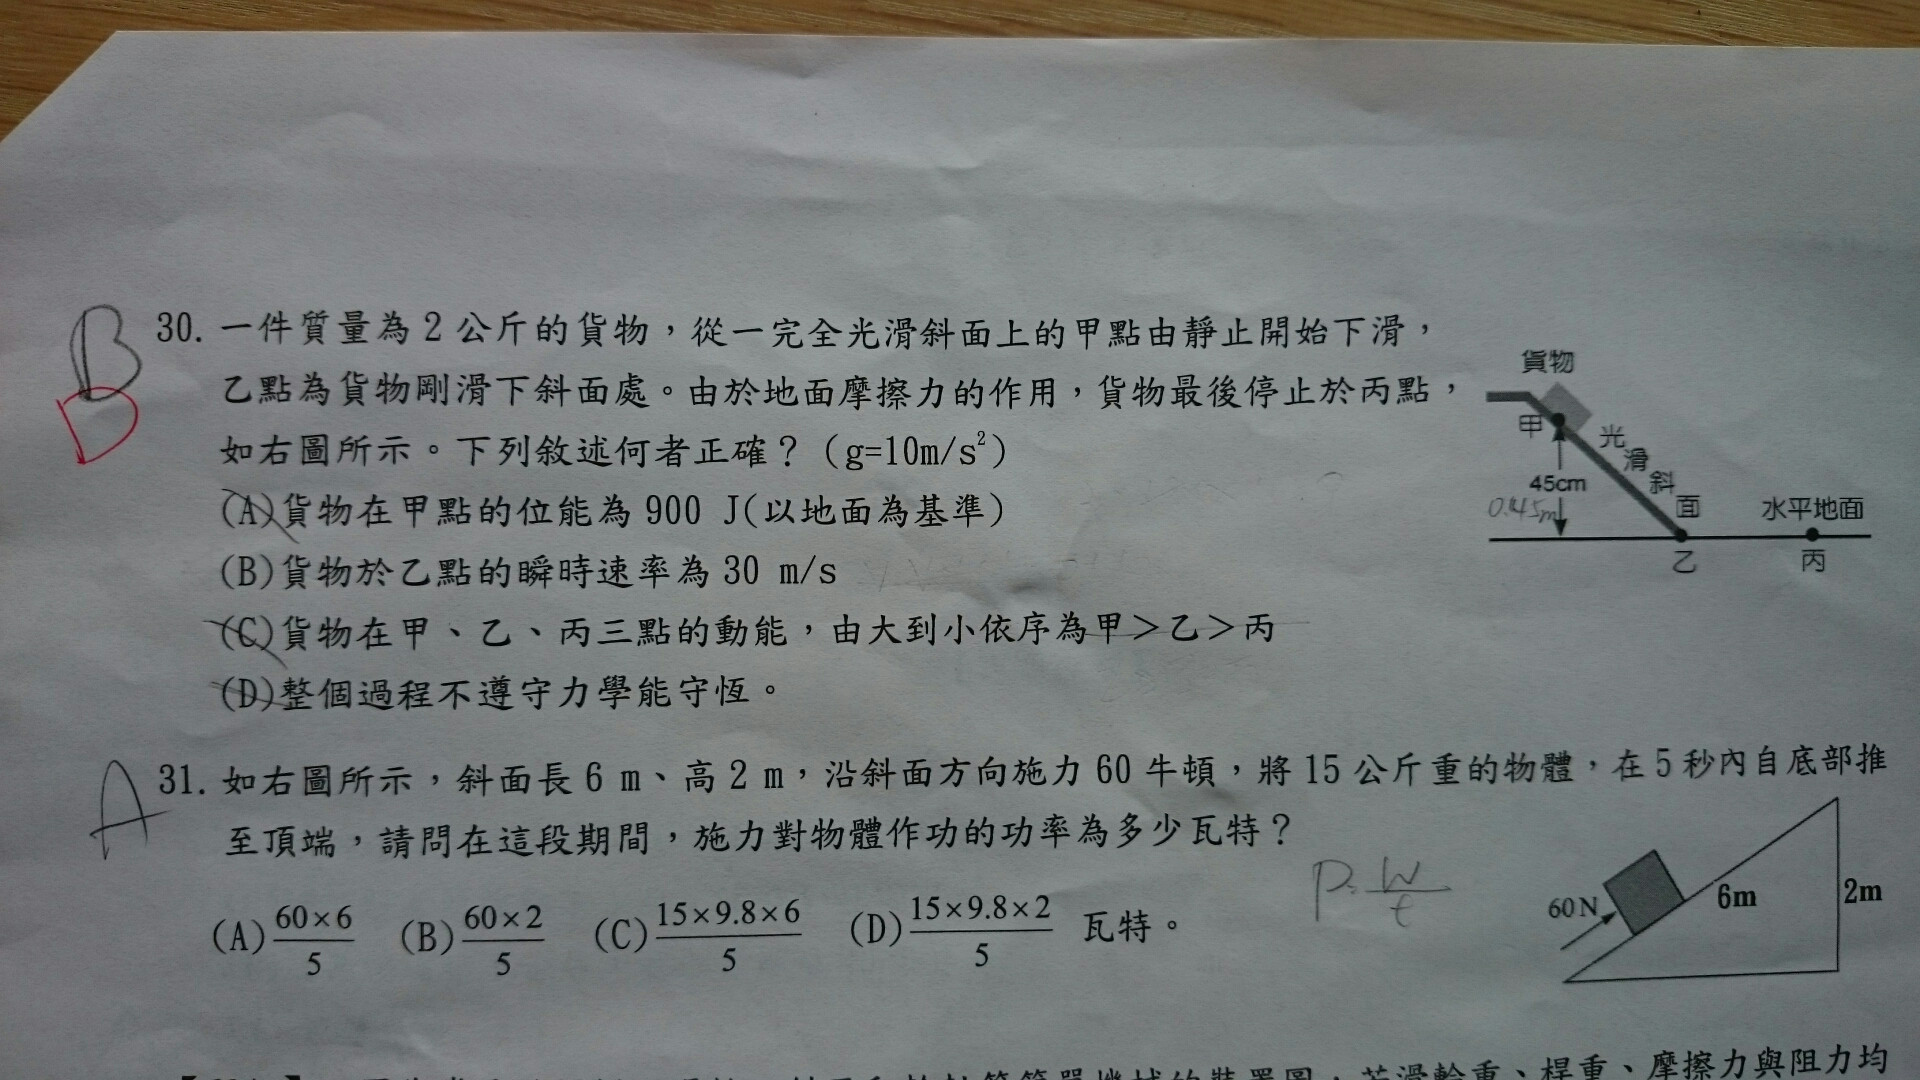 B
D
30. 一件質量為 2 公斤的貨物，從一完全光滑斜面上的甲點由靜止開始下滑，
乙點為貨物剛滑下斜面處。由於地面摩擦力的作用，貨物最後停止於丙點，
如右圖所示。下列敘述何者正確？（g=10m/s²）
(A)貨物在甲點的位能為 900 J(以地面為基準)
(B)貨物於乙點的瞬時速率為 30 m/s
(C)貨物在甲、乙、丙三點的動能，由大到小依序為甲＞乙＞丙
(D)整個過程不遵守力學能守恆。
貨物
甲
光滑斜面
45cm
0.45m
水平地面
乙
丙
A
31. 如右圖所示，斜面長 6 m、高 2 m，沿斜面方向施力 60 牛頓，將 15 公斤重的物體，在 5 秒內自底部推
至頂端，請問在這段期間，施力對物體作功的功率為多少瓦特？
(A) 60×6/5 (B) 60×2/5 (C) 15×9.8×6/5 (D) 15×9.8×2/5 瓦特。
P=W/t
60N
6m
2m
滑輪重、桿重、摩擦力與阻力均